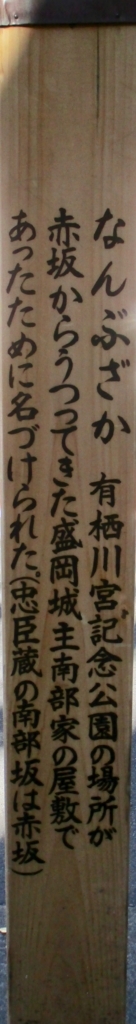 なんぶざか 有栖川宮記念公園の場所が
赤坂からうつってきた盛岡城主南部家の屋敷で
あったために名づけられた。(忠臣蔵の南部坂は赤坂)